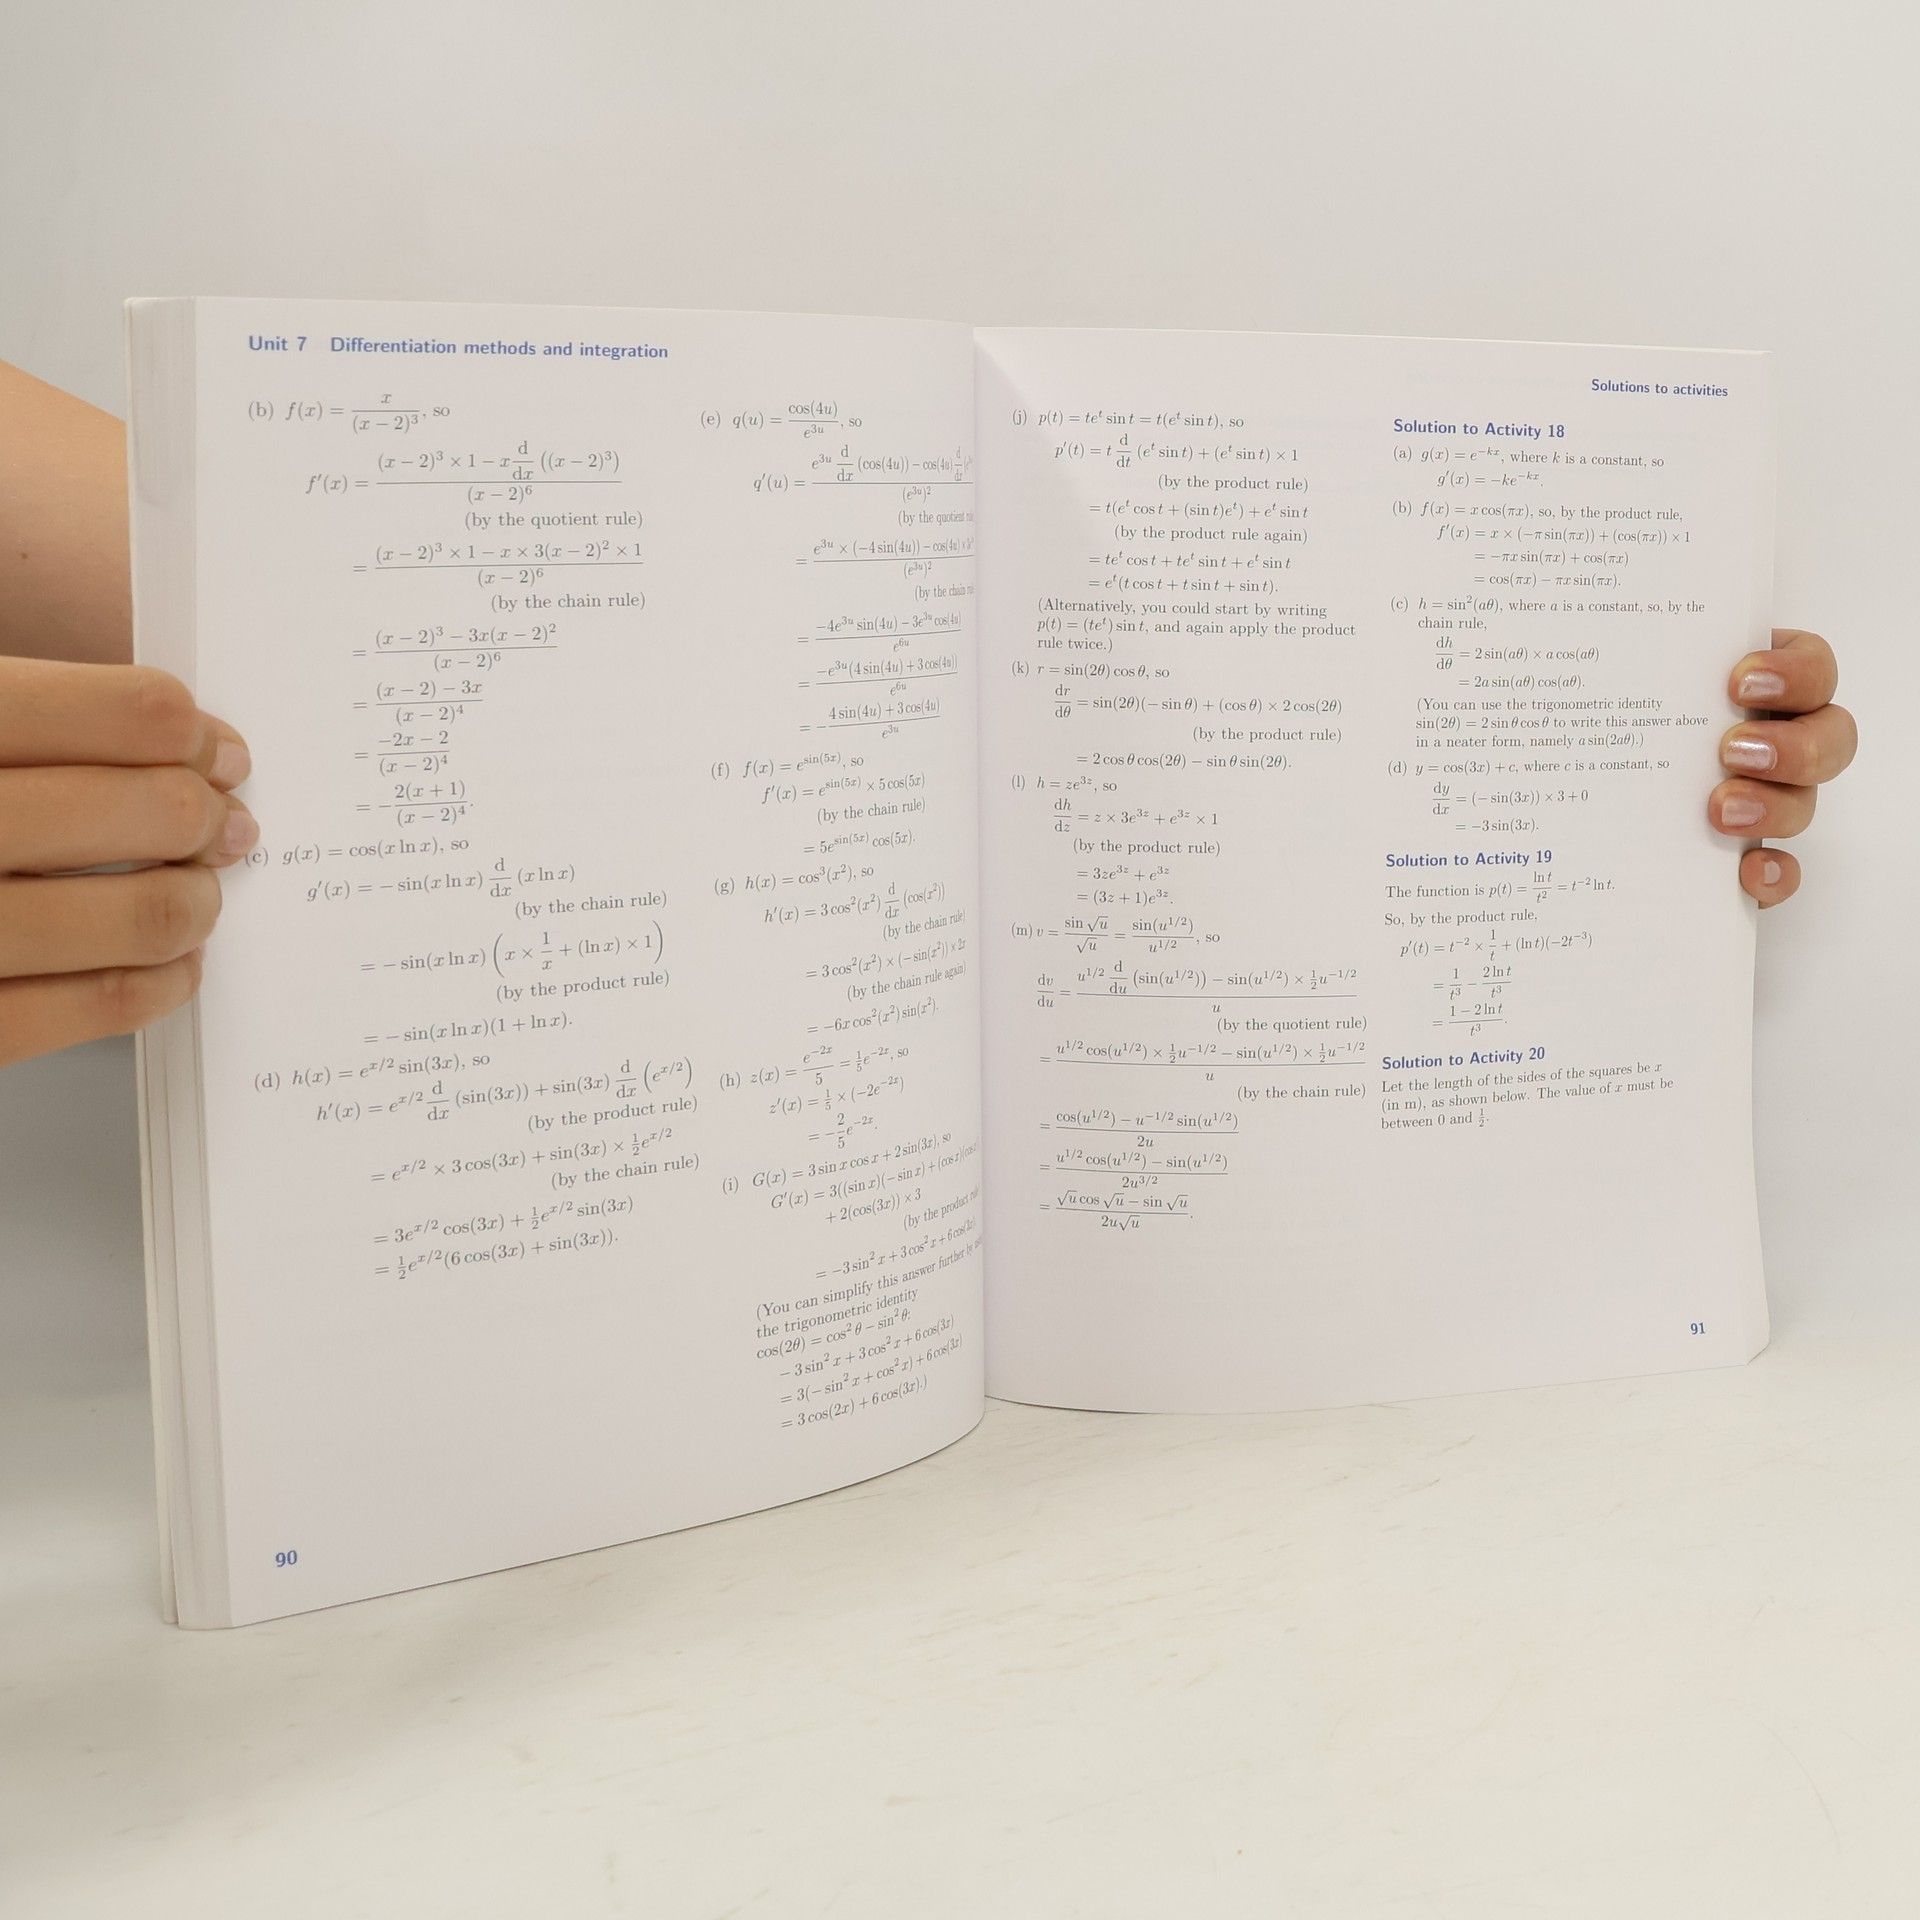 Unit 7 Differentiation methods and integration
(b) f(x) = x/(x − 2)³, so
f′(x) = ((x − 2)³ × 1 − x d/dx ((x − 2)³))/(x − 2)⁶
(by the quotient rule)
= ((x − 2)³ × 1 − x × 3(x − 2)² × 1)/(x − 2)⁶
(by the chain rule)
= ((x − 2)³ − 3x(x − 2)²)/(x − 2)⁶
= ((x − 2) − 3x)/(x − 2)⁴
= (−2x − 2)/(x − 2)⁴
= −2(x + 1)/(x − 2)⁴.
(c) g(x) = cos(x ln x), so
g′(x) = − sin(x ln x) d/dx (x ln x)
(by the chain rule)
= − sin(x ln x) (x × 1/x + (ln x) × 1)
(by the product rule)
= − sin(x ln x)(1 + ln x).
(d) h(x) = e^(x/2) sin(3x), so
h′(x) = e^(x/2) d/dx (sin(3x)) + sin(3x) d/dx (e^(x/2))
(by the product rule)
= e^(x/2) × 3 cos(3x) + sin(3x) × ½e^(x/2)
(by the chain rule)
= 3e^(x/2) cos(3x) + ½e^(x/2) sin(3x)
= ½e^(x/2)(6 cos(3x) + sin(3x)).
90
(e) q(u) = cos(4u)/e^(3u), so
q′(u) = (e^(3u) d/du (cos(4u)) − cos(4u)
(e^(3u))²
(by the quotient
= (e^(3u) × (−4 sin(4u)) − cos(4u) ×
(e^(3u))²
(by the chain
= (−4e^(3u) sin(4u) − 3e^(3u) cos(4u))/e^(6u)
= −e^(3u)(4 sin(4u) + 3 cos(4u))/e^(6u)
= −(4 sin(4u) + 3 cos(4u))/e^(3u)
(f) f(x) = e^(sin(5x)), so
f′(x) = e^(sin(5x)) × 5 cos(5x)
(by the chain rule)
= 5e^(sin(5x)) cos(5x).
(g) h(x) = cos³(x²), so
h′(x) = 3 cos²(x²) d/dx (cos(x²))
(by the chain rule)
= 3 cos²(x²) × (− sin(x²)) × 2x
(by the chain rule again)
= −6x cos²(x²) sin(x²).
(h) z(x) = e^(−2x)/5 = ⅕e^(−2x), so
z′(x) = ⅕ × (−2e^(−2x))
= −2/5 e^(−2x).
(i) G(x) = 3 sin x cos x + 2 sin(3x), so
G′(x) = 3((sin x)(− sin x) + (cos x)(cos
+ 2(cos(3x)) × 3
(by the product
= −3 sin² x + 3 cos² x + 6 cos(3x).
(You can simplify this answer further by
the trigonometric identity
cos(2θ) = cos² θ − sin² θ:
− 3 sin² x + 3 cos² x + 6 cos(3x)
= 3(− sin² x + cos² x) + 6 cos(3x)
= 3 cos(2x) + 6 cos(3x).)
Solutions to activities
(j) p(t) = te^t sin t = t(e^t sin t), so
p′(t) = t d/dt (e^t sin t) + (e^t sin t) × 1
(by the product rule)
= t(e^t cos t + (sin t)e^t) + e^t sin t
(by the product rule again)
= te^t cos t + te^t sin t + e^t sin t
= e^t(t cos t + t sin t + sin t).
(Alternatively, you could start by writing
p(t) = (te^t) sin t, and again apply the product
rule twice.)
(k) r = sin(2θ) cos θ, so
dr/dθ = sin(2θ)(− sin θ) + (cos θ) × 2 cos(2θ)
(by the product rule)
= 2 cos θ cos(2θ) − sin θ sin(2θ).
(l) h = ze^(3z), so
dh/dz = z × 3e^(3z) + e^(3z) × 1
(by the product rule)
= 3ze^(3z) + e^(3z)
= (3z + 1)e^(3z).
(m) v = sin √u/√u = sin(u^(1/2))/u^(1/2), so
dv/du = (u^(1/2) d/du (sin(u^(1/2))) − sin(u^(1/2)) × ½u^(−1/2))/u
(by the quotient rule)
= (u^(1/2) cos(u^(1/2)) × ½u^(−1/2) − sin(u^(1/2)) × ½u^(−1/2))/u
(by the chain rule)
= (cos(u^(1/2)) − u^(−1/2) sin(u^(1/2)))/2u
= (u^(1/2) cos(u^(1/2)) − sin(u^(1/2)))/2u^(3/2)
= (√u cos √u − sin √u)/2u√u.
Solution to Activity 18
(a) g(x) = e^(−kx), where k is a constant, so
g′(x) = −ke^(−kx).
(b) f(x) = x cos(πx), so, by the product rule,
f′(x) = x × (−π sin(πx)) + (cos(πx)) × 1
= −πx sin(πx) + cos(πx)
= cos(πx) − πx sin(πx).
(c) h = sin²(aθ), where a is a constant, so, by the
chain rule,
dh/dθ = 2 sin(aθ) × a cos(aθ)
= 2a sin(aθ) cos(aθ).
(You can use the trigonometric identity
sin(2θ) = 2 sin θ cos θ to write this answer above
in a neater form, namely a sin(2aθ).)
(d) y = cos(3x) + c, where c is a constant, so
dy/dx = (− sin(3x)) × 3 + 0
= −3 sin(3x).
Solution to Activity 19
The function is p(t) = ln t/t² = t⁻² ln t.
So, by the product rule,
p′(t) = t⁻² × 1/t + (ln t)(−2t⁻³)
= 1/t³ − 2 ln t/t³
= (1 − 2 ln t)/t³.
Solution to Activity 20
Let the length of the sides of the squares be x
(in m), as shown below. The value of x must be
between 0 and ½.
91